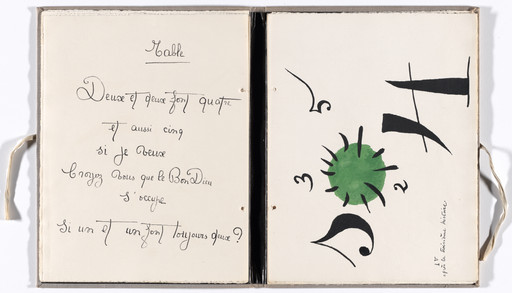 Table
Deux et deux font quatre
et aussi cinq
si je veux
Croyez vous que le Bon Dieu
s'occupe
Si un et un font toujours deux?
5
3
2